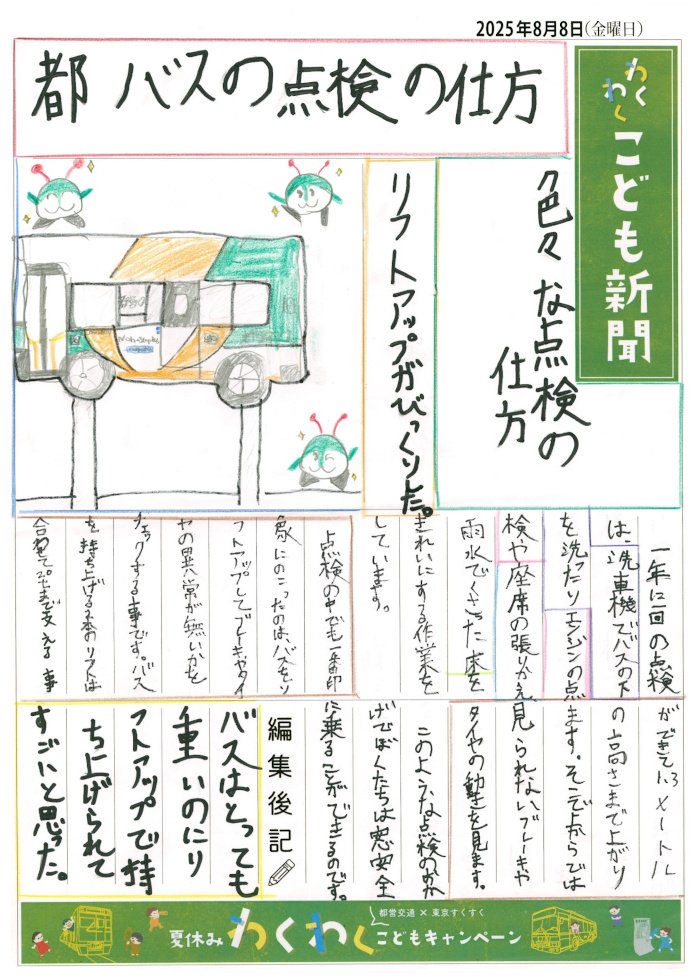 2025年8月8日(金曜日)
わくわく
こども新聞
都バスの点検の仕方
色々な点検の
仕方
リフトアップがびっくりした。
一年に一回の点検
は、洗車機でバスの下
を洗ったりエンジンの点
検や座席の張りかえ
雨水でくさった床を
きれいにする作業を
しています。
点検の中でも一番印
象にのこったのは、バスをリ
フトアップしてブレーキやタイ
ヤの異常が無いかを
チェックする事です。バス
を持ち上げる2本のリフトは
合わせて20tまで支える事
ができて1.3メートル
の高さまで上がり
ます。そこで上からでは
見られないブレーキや
タイヤの動きを見ます。
このような点検のおか
げでぼくたちは安全
に乗ることができるのです。
編集後記
バスはとっても
重いのにリ
フトアップで持
ち上げられて
すごいと思った。
都営交通×東京すくすく
夏休みわくわくこどもキャンペーン